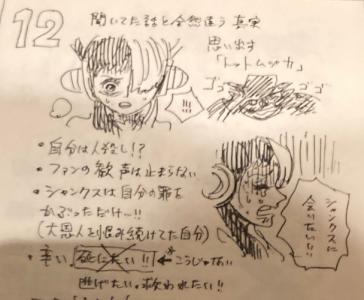 12
聞いてた話と全然違う真実
思い出す
「トットムジカ」
ゴゴ
ゴゴ
!!!
・自分は人殺し!?
・ファンの歓声は止まらない
・シャンクスは自分の罪を
かぶっただけ…!!
(大恩人を恨み続けてた自分)
・辛い。死にたい!!←※こうじゃない
逃げたい。救われたい!!
シャンクスに
会いたい!!